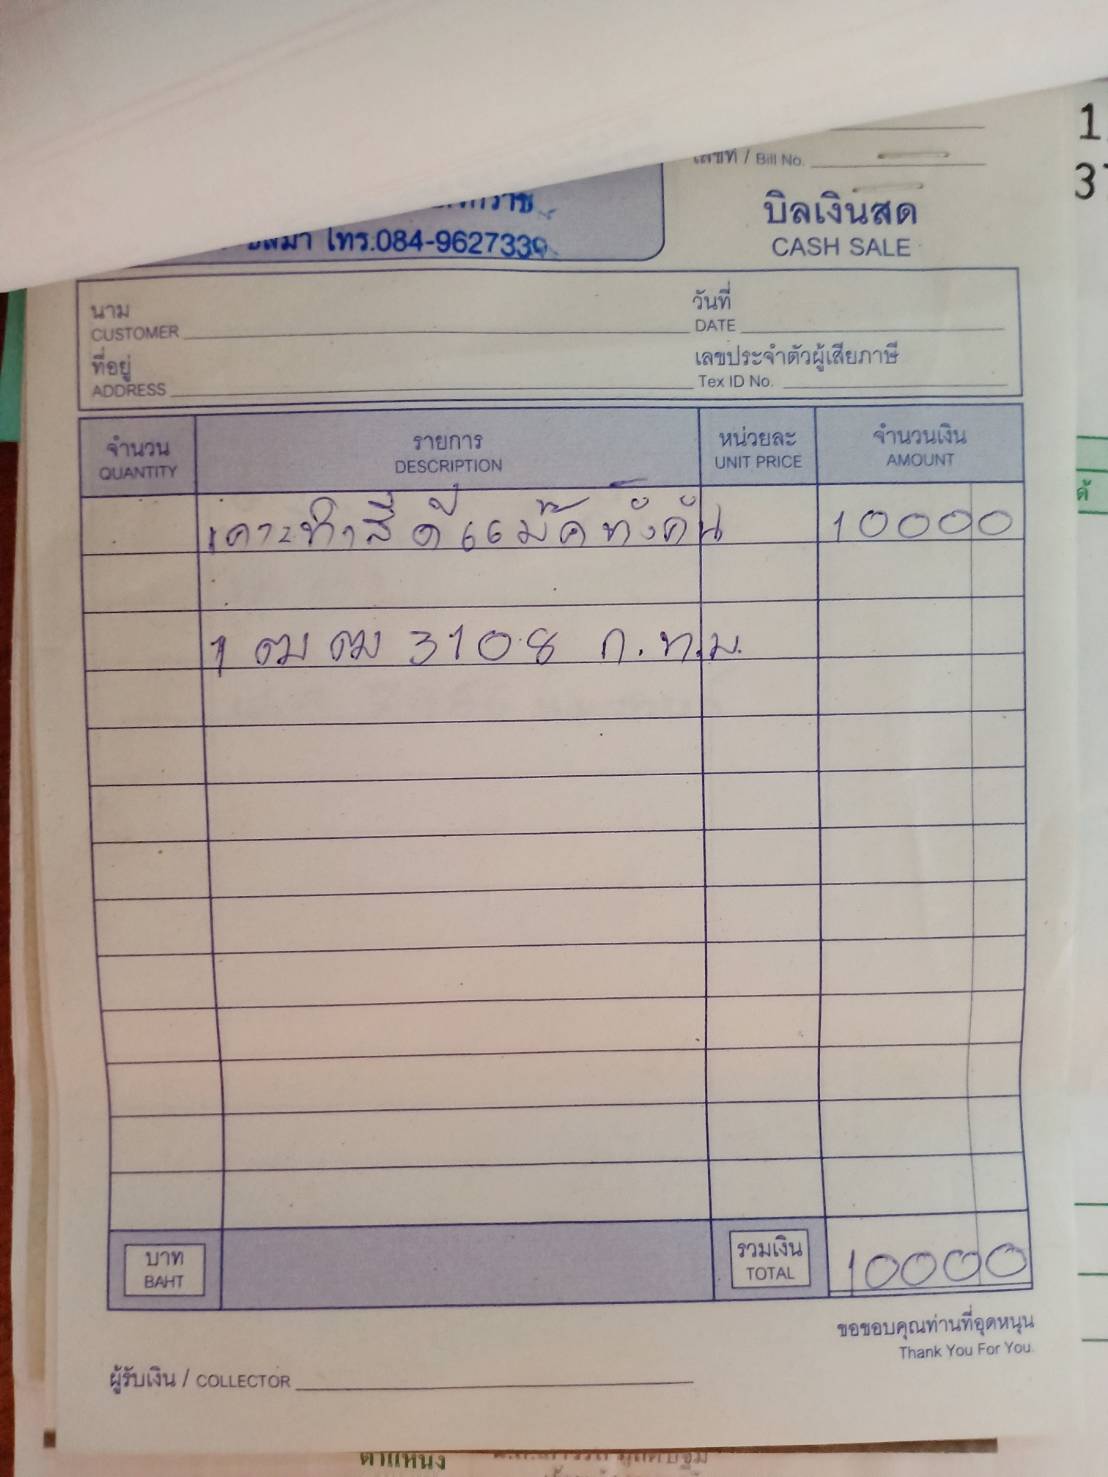 เลขที่ / Bill No.
บิลเงินสด
CASH SALE
โทร.084-9627339
นาม
CUSTOMER
วันที่
DATE
ที่อยู่
ADDRESS
เลขประจำตัวผู้เสียภาษี
Tex ID No.
จำนวน
QUANTITY
รายการ
DESCRIPTION
หน่วยละ
UNIT PRICE
จำนวนเงิน
AMOUNT
เคาะทำสี ดี 66 ม๊ค ทั้งคัน 10000
1 ฒฒ 3108 ก.ท.ม.
บาท
BAHT
รวมเงิน
TOTAL
10000
ขอขอบคุณท่านที่อุดหนุน
Thank You For You.
ผู้รับเงิน / COLLECTOR
ตำแหน่ง